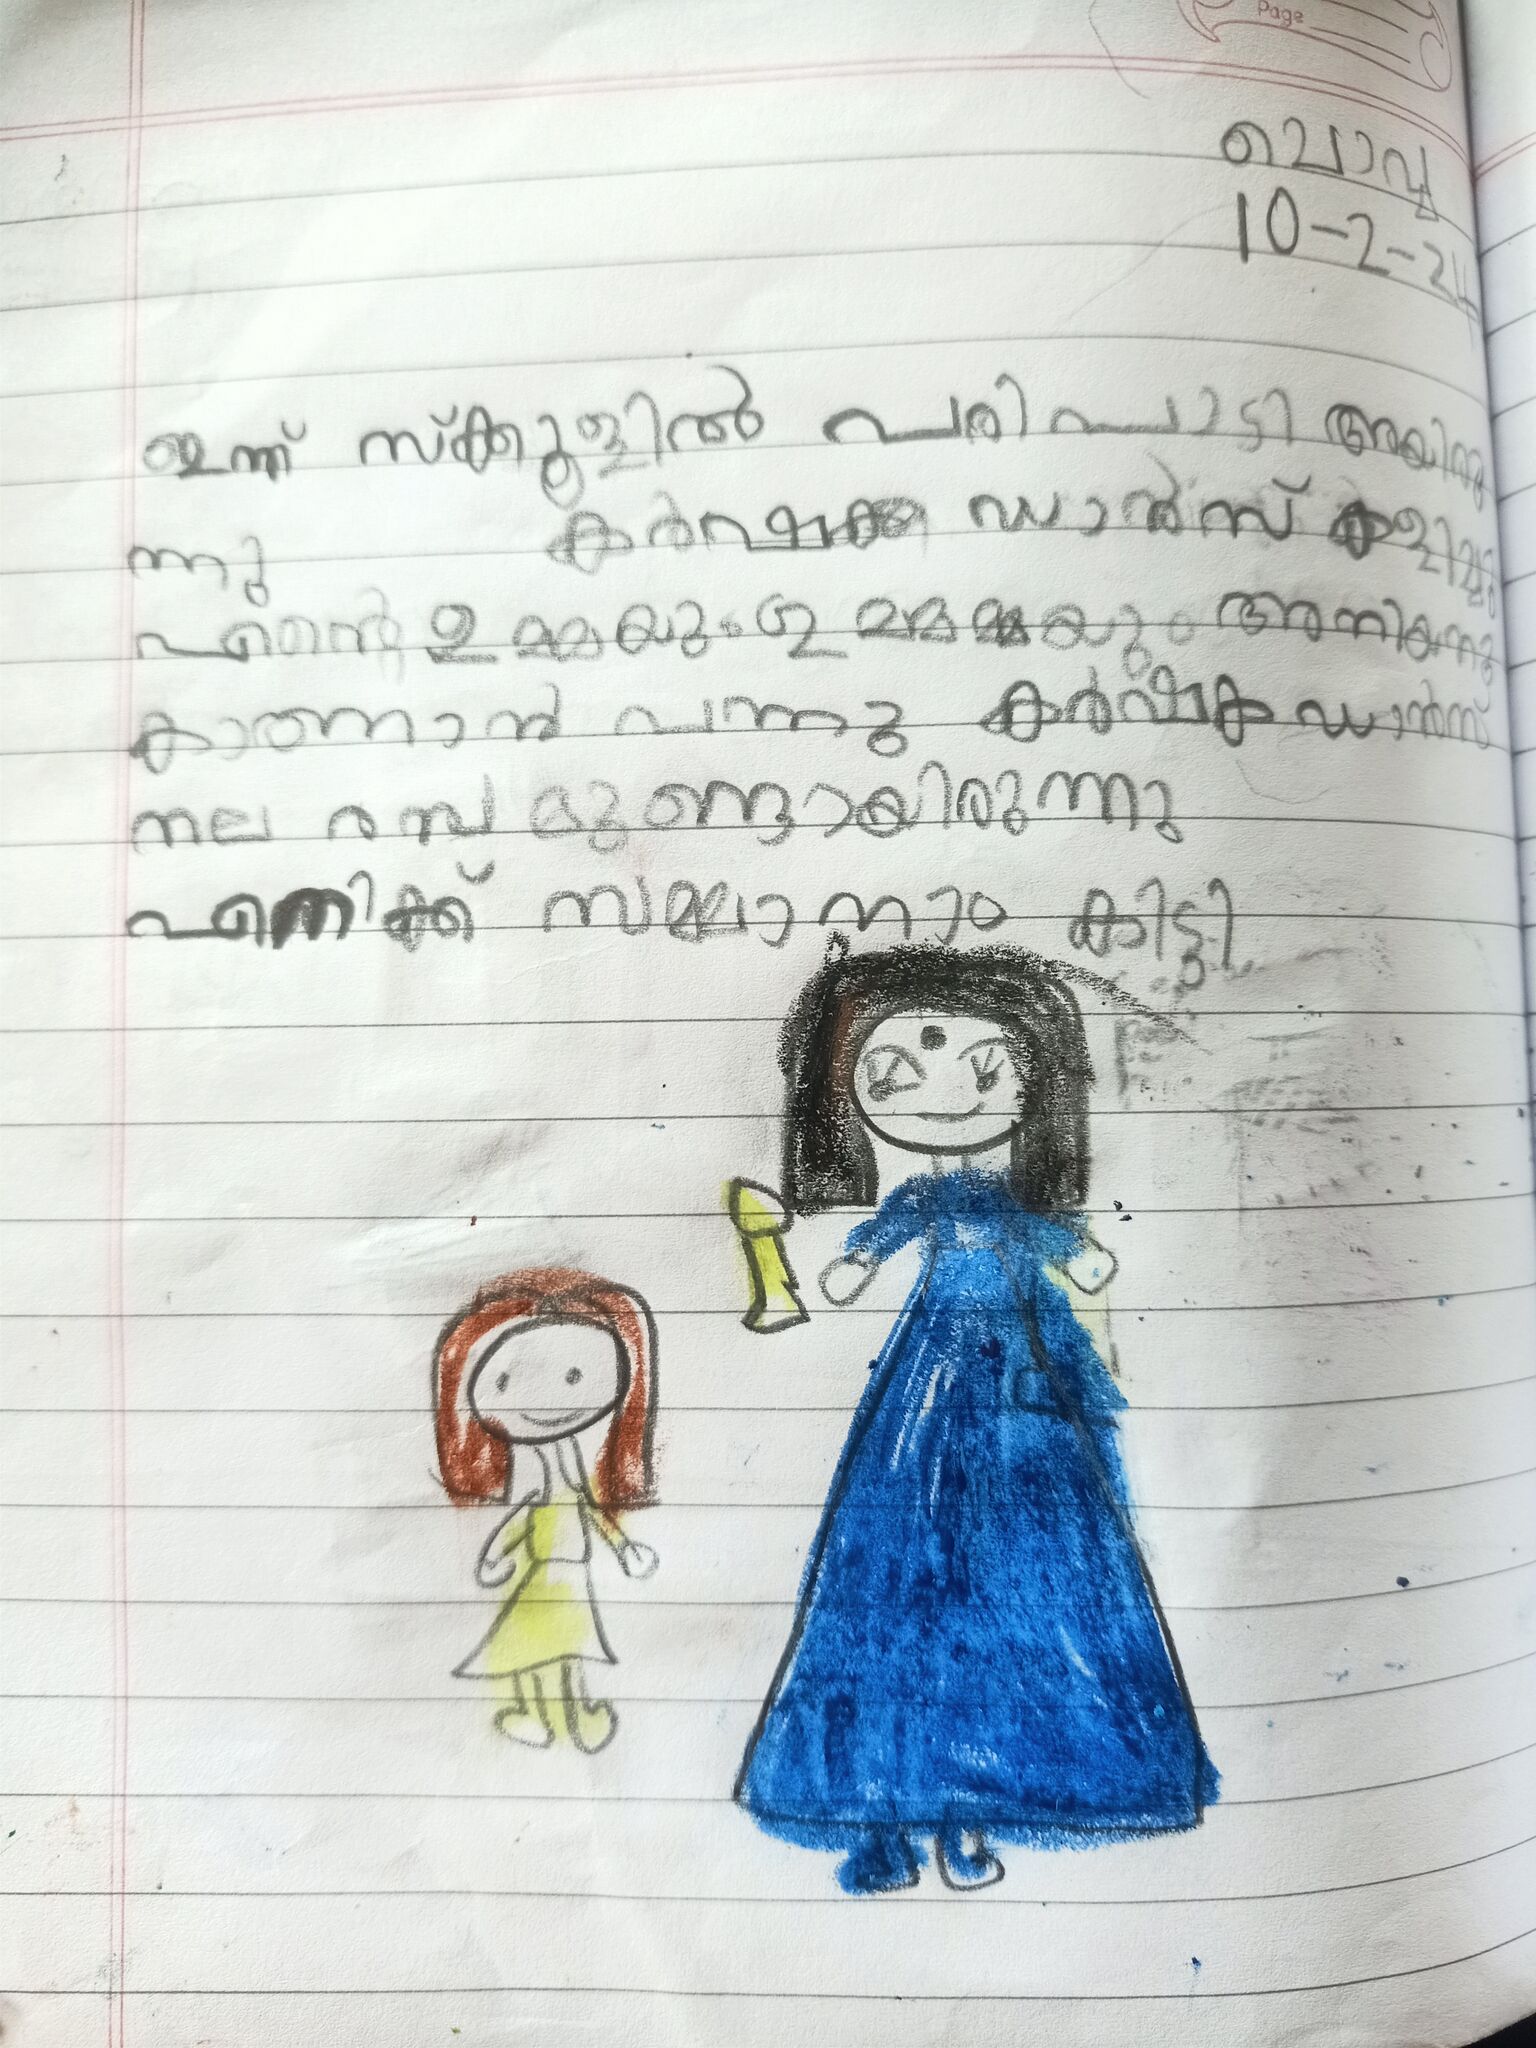 Page
ചൊവ്വ
10-2-24
ഇന്ന് സ്ക്കൂളിൽ പരിപാടി അയിരു
ന്നു കർഷക ഡാൻസ് കളിച്ചു
എന്റെ ഉമ്മയും ഉമ്മമ്മയും അനിയനു
കാണാൻ വന്നു കർഷക ഡാൻസ്
നല രസ മുണ്ടായിരുന്നു
എനിക്ക് സമ്മാനാം കിട്ടി